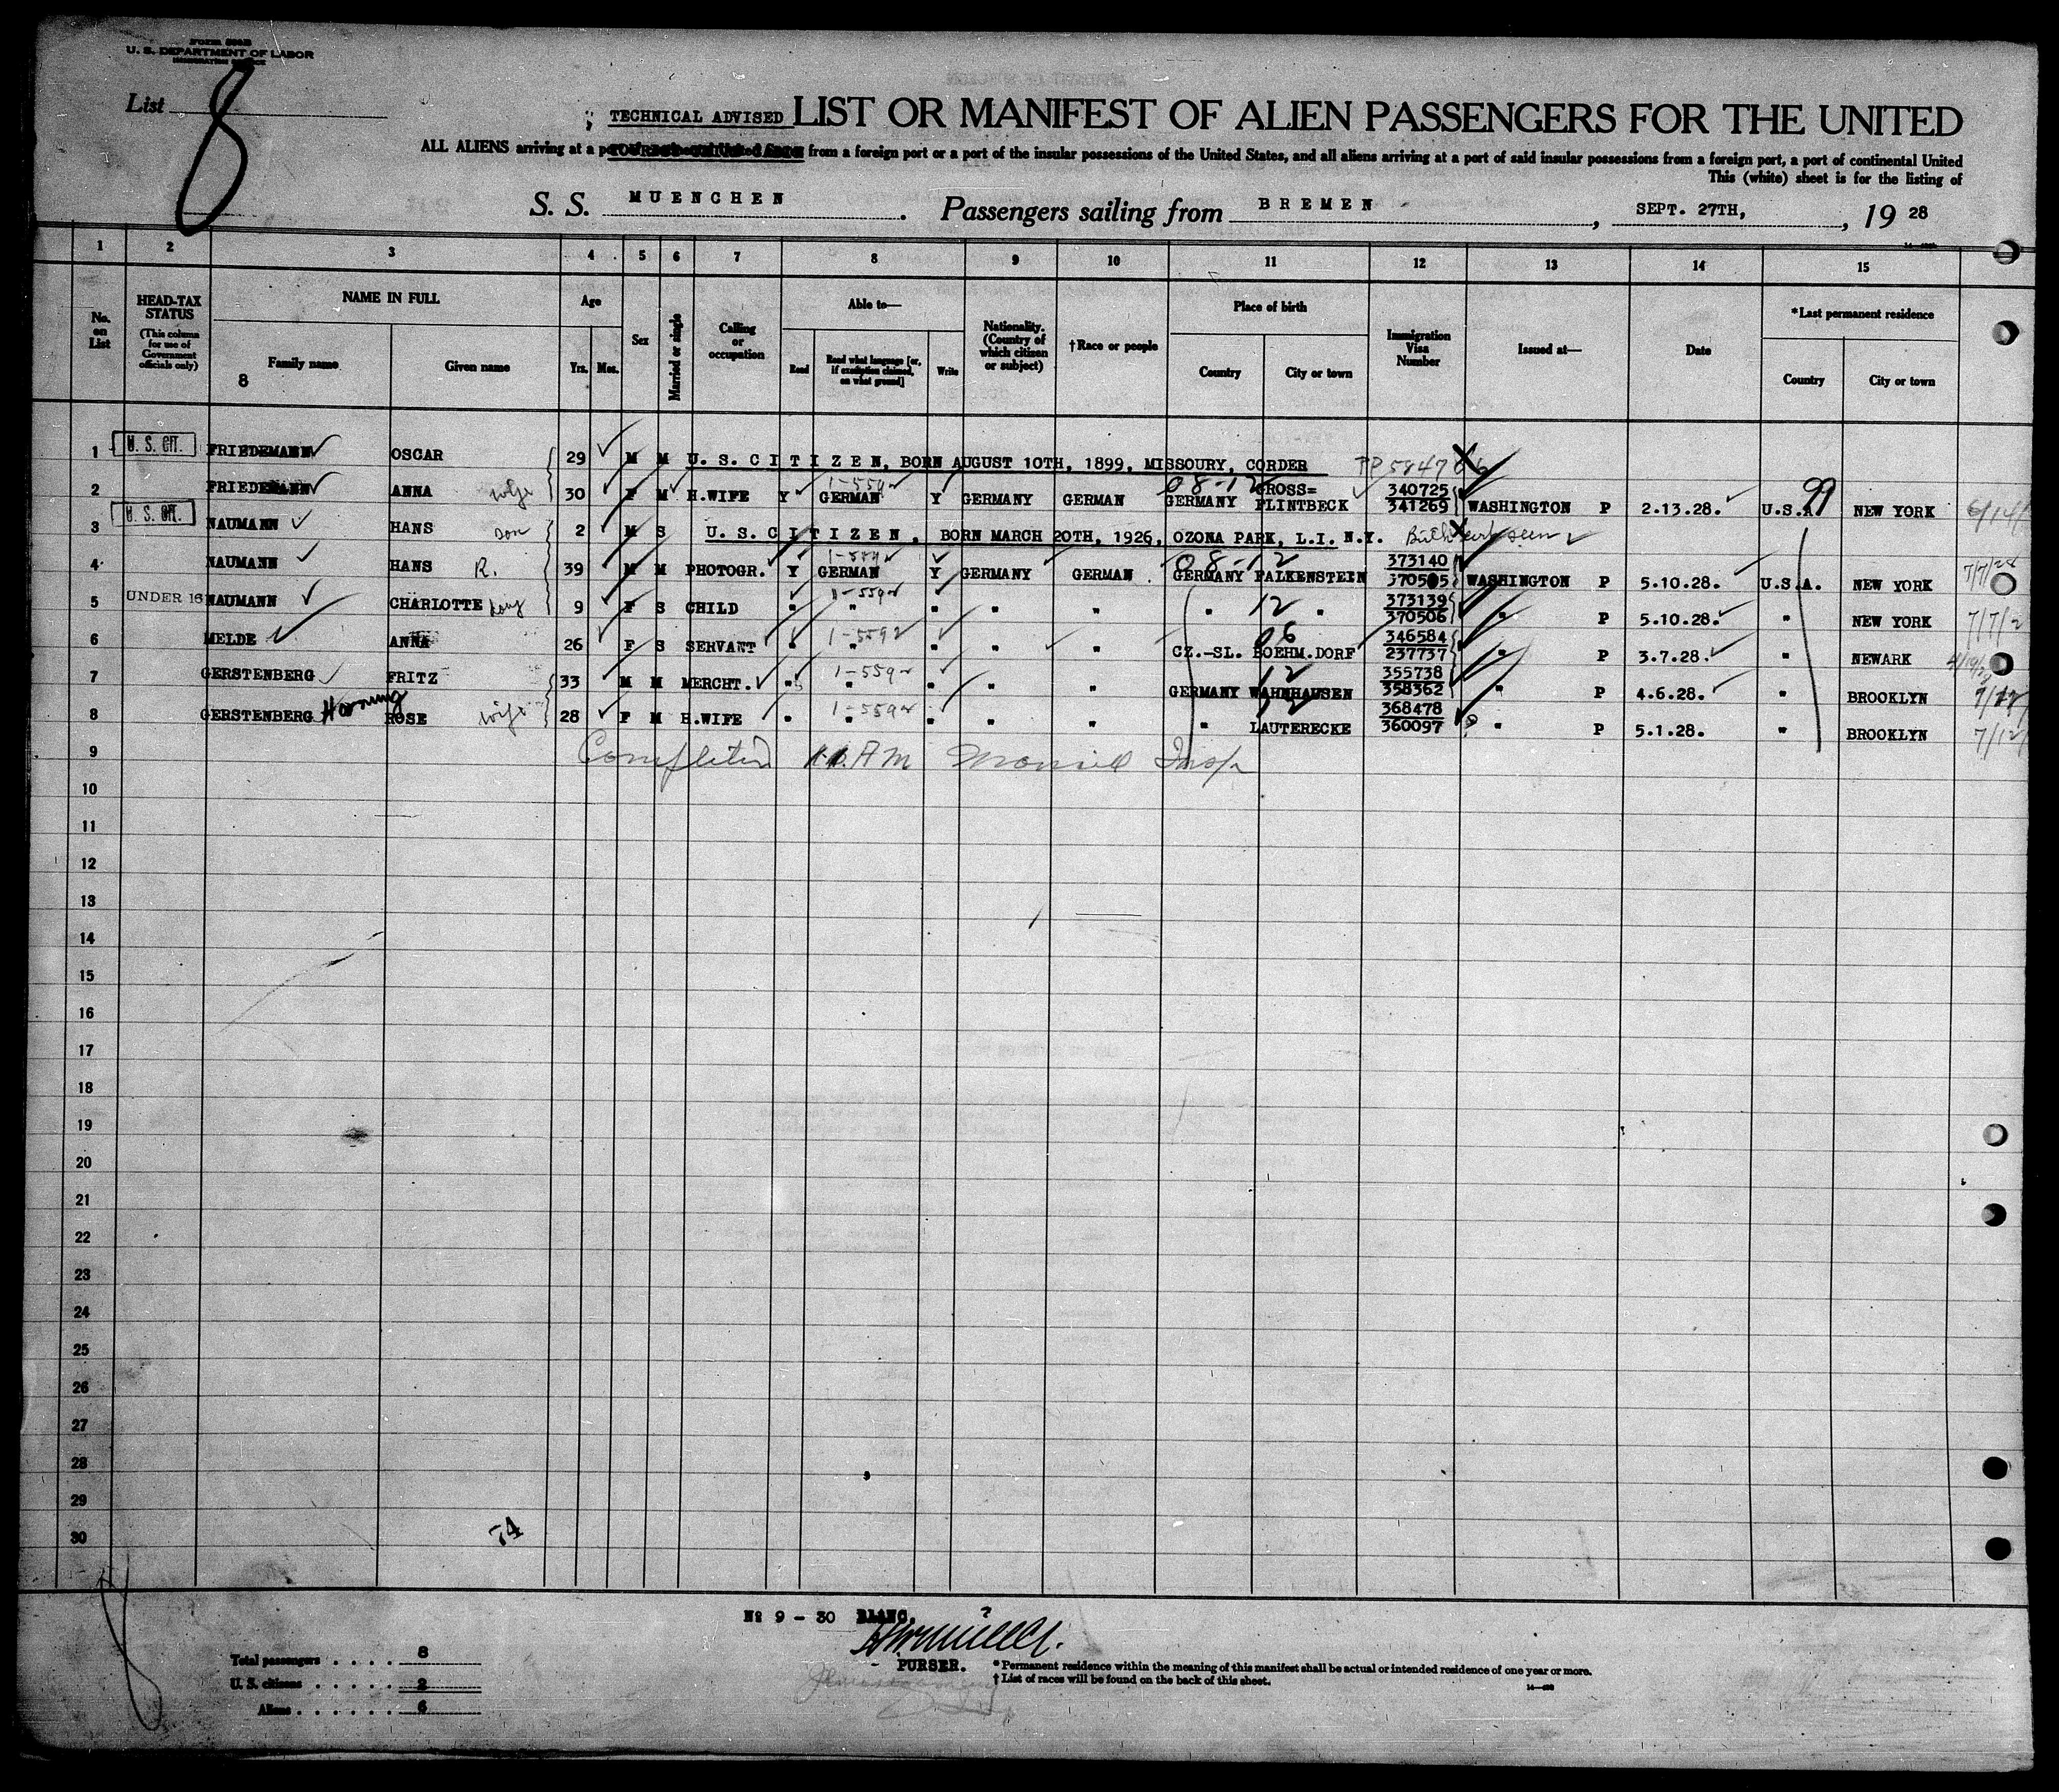 U. S. DEPARTMENT OF LABOR
List 8
TECHNICAL ADVISED LIST OR MANIFEST OF ALIEN PASSENGERS FOR THE UNITED
ALL ALIENS arriving at a from a foreign port or a port of the insular possessions of the United States, and all aliens arriving at a port of said insular possessions from a foreign port, a port of continental United
This (white) sheet is for the listing of
S. S. MUENCHEN. Passengers sailing from BREMEN, SEPT. 27TH, , 19 28
1 2 3 4 5 6 7 8 9 10 11 12 13 14 15
No. on List
HEAD-TAX STATUS
(This column for use of Government officials only)
NAME IN FULL
Family name
8
Given name
Age
Yrs. Mos.
Sex
Married or single
Calling or occupation
Able to—
Read
Read what language [or, if exemption claimed, on what ground]
Write
Nationality. (Country of which citizen or subject)
†Race or people
Place of birth
Country
City or town
Immigration Visa Number
Issued at—
Date
*Last permanent residence
Country
City or town
1 U. S. CIT. FRIEDEMANN OSCAR 29 M M U. S. C I T I Z E N, BORN AUGUST 10TH, 1899, MISSOURY, CORDER
2 FRIEDEMANN ANNA wife 30 F M H.WIFE Y 1-5592 GERMAN Y GERMANY GERMAN 08-12 GERMANY GROSS= FLINTBECK 340725 341269 WASHINGTON P 2.13.28. U.S.A. 99 NEW YORK 6/14/
3 U. S. CIT. NAUMANN HANS son 2 M S U. S. C I T I Z E N, BORN MARCH 20TH, 1926, OZONA PARK, L.I. N.Y. Birth cert seen
4 NAUMANN HANS R. 39 M M PHOTOGR. Y GERMAN Y GERMANY GERMAN 08-12 GERMANY FALKENSTEIN 373140 370505 WASHINGTON P 5.10.28. U.S.A. NEW YORK 7/7/28
5 UNDER 16 NAUMANN CHARLOTTE 9 F S CHILD " 1-5592 " " " " " 12 " 373139 370506 " P 5.10.28. " NEW YORK 7/7/2
6 MELDE ANNA 26 F S SERVANT " 1-5592 " " " " CZ.-SL. 06 BOEHM.DORF 346584 237737 " P 3.7.28. " NEWARK
7 GERSTENBERG FRITZ 33 M M MERCHT. " 1-5592 " " " " GERMANY 12 WAHNHAUSEN 355738 358362 " P 4.6.28. " BROOKLYN
8 GERSTENBERG Hornung ROSE wife 28 F M H.WIFE " 1-5592 " " " " " 12 LAUTERECKE 368478 360097 " P 5.1.28. " BROOKLYN 7/12/
9 Completed A.M. Insp
10
11
12
13
14
15
16
17
18
19
20
21
22
23
24
25
26
27
28
29
30
74
No 9 - 30 BLANC.
PURSER.
Total passengers . . . . 8
U. S. citizens . . . . . 2
Aliens . . . . . . 6
* Permanent residence within the meaning of this manifest shall be actual or intended residence of one year or more.
† List of races will be found on the back of this sheet.